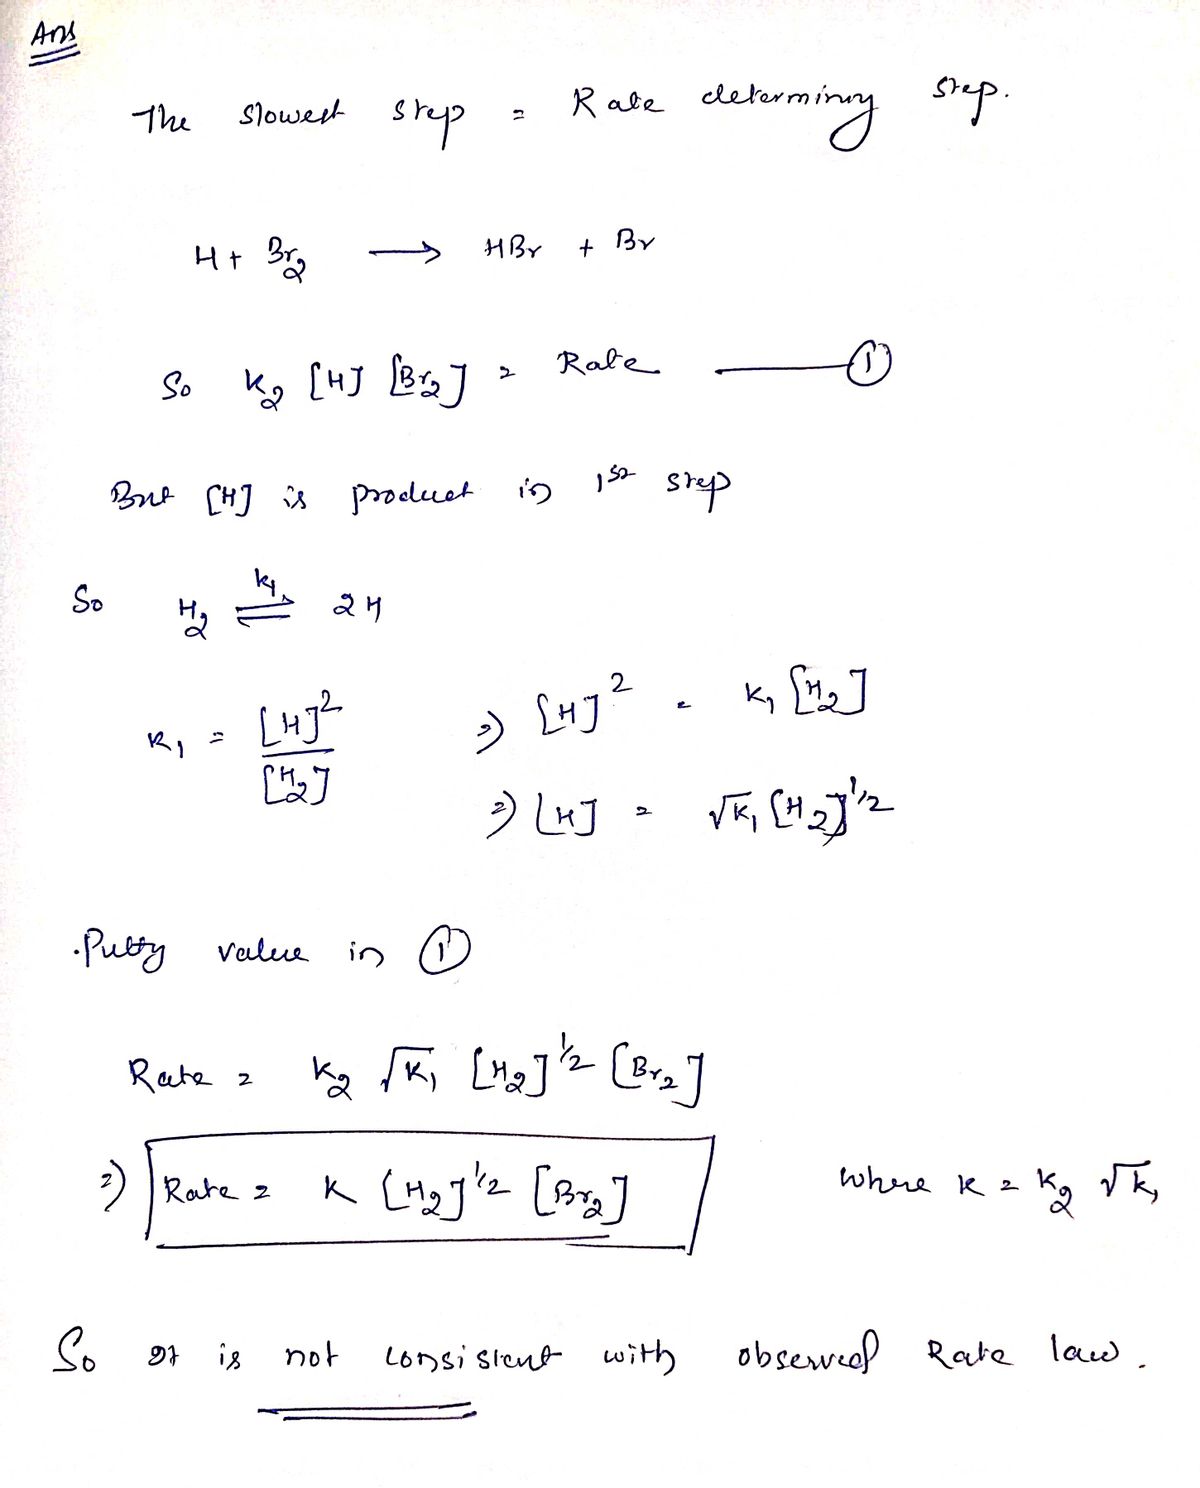 Ans
The slowest step = Rate determining step.
H + Br2 ⟶ HBr + Br
So K2 [H] [Br2] = Rate ——— ①
But [H] is product in 1st step
So H2 ⇌ 2H
k1
K1 = [H]^2 / [H2] ⇒ [H]^2 = K1 [H2]
⇒ [H] = √K1 [H2]^1/2
Putty value in ①
Rate = K2 √K1 [H2]^1/2 [Br2]
⇒ Rate = K [H2]^1/2 [Br2] where K = K2 √K1
So It is not consistent with observed Rate law.